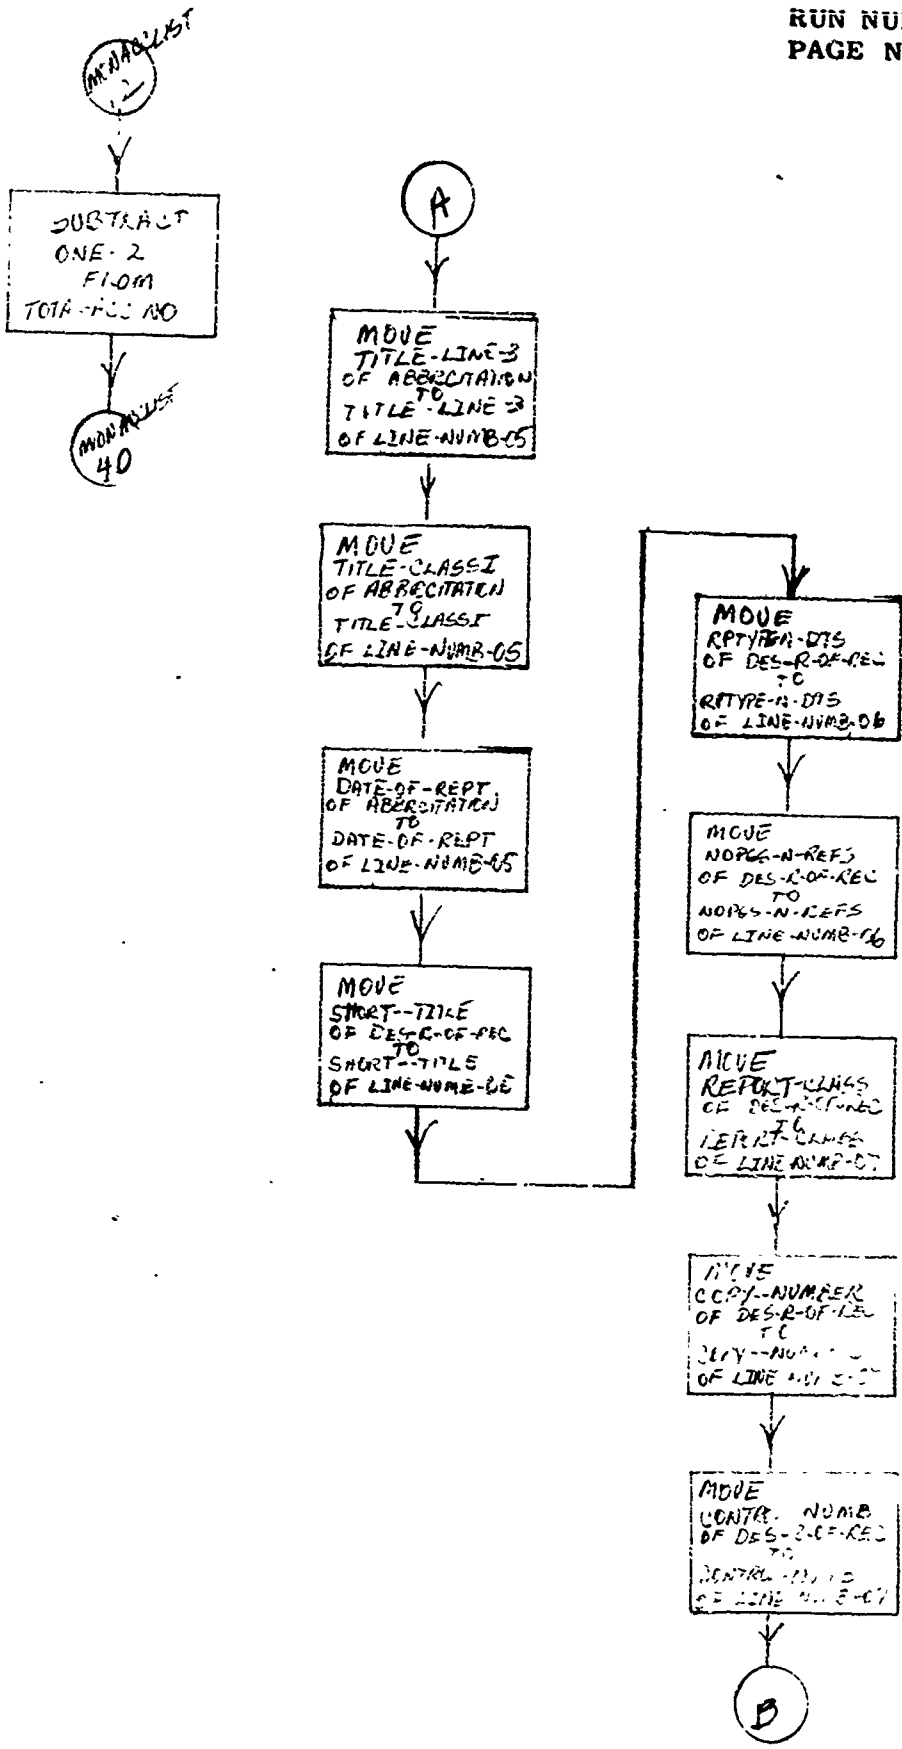 RUN NU
PAGE N
2
SUBTRACT
ONE-2
FROM
NO
MONACLIST
40
A
MOVE
TITLE-LINE-3
OF ABBRCITATION
TO
TITLE-LINE-3
OF LINE-NUMB-05
MOVE
TITLE-CLASSI
OF ABBRCITATION
TO
TITLE-CLASSI
OF LINE-NUMB-05
MOVE
DATE-OF-REPT
OF ABBRCITATION
TO
DATE-OF-REPT
OF LINE-NUMB-05
MOVE
SHORT--TITLE
OF DES-R-OF-REC
TO
SHORT--TITLE
OF LINE-NUMB-06
MOVE
RPTYPE-N-DTS
OF DES-R-OF-REC
TO
RPTYPE-N-DTS
OF LINE-NUMB-06
MOVE
NOPGS-N-REFS
OF DES-R-OF-REC
TO
NOPGS-N-REFS
OF LINE-NUMB-06
MOVE
REPORT-CLASS
OF DES-R-OF-REC
TO
REPORT-CLASS
OF LINE-NUMB-07
MOVE
COPY--NUMBER
OF DES-R-OF-REC
TO
OF LINE
MOVE
NUMB
OF DES-R-OF-REC
TO
OF LINE-NUMB-07
B